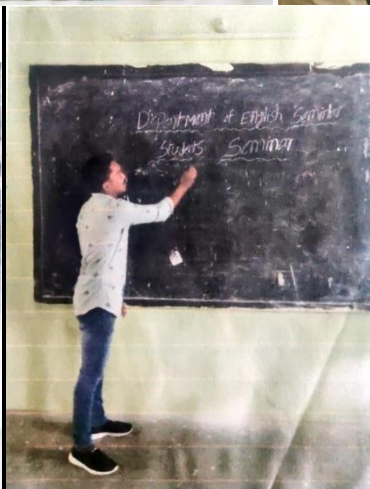 Department of English Seminar
Students Seminar